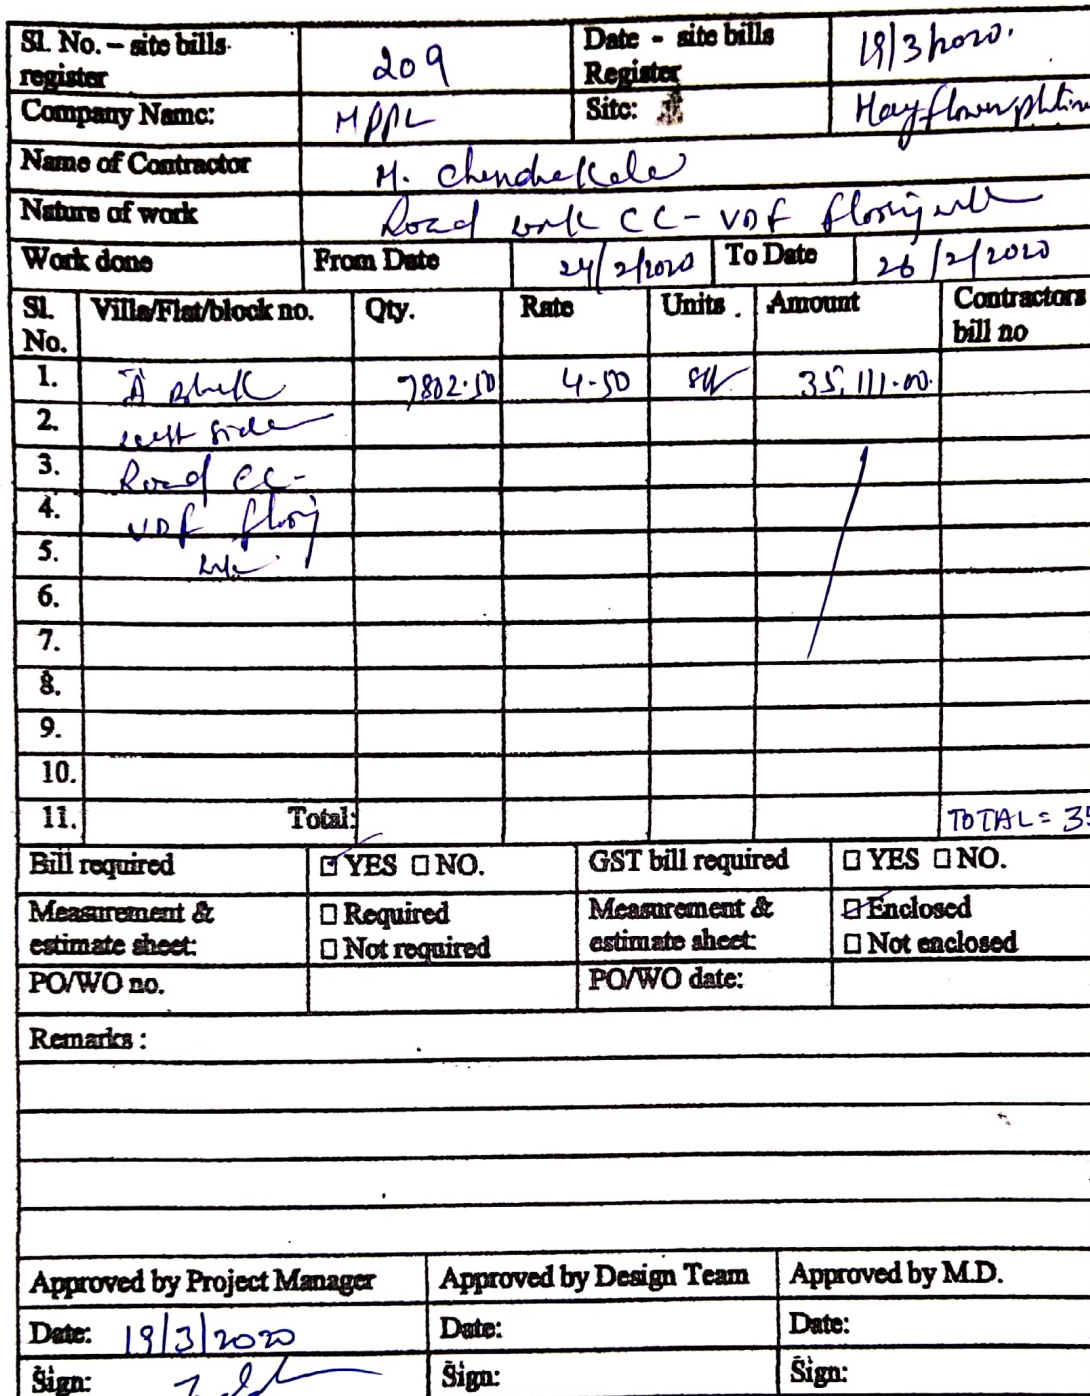 Sl. No. – site bills register 209 Date - site bills Register 19/3/2020.
Company Name: MPPL Site: Mayflower platinu
Name of Contractor M. Chandrakala
Nature of work Road work CC - VDF flooring work
Work done From Date 24/2/2020 To Date 26/2/2020
Sl. No. Villa/Flat/block no. Qty. Rate Units. Amount Contractors bill no
1. A Block 7802.50 4-50 sft 35,111.00
2. west side
3. Road CC-
4. VDF flooring
5. work
6.
7.
8.
9.
10.
11. Total: TOTAL = 35
Bill required ☑ YES ☐ NO. GST bill required ☐ YES ☐ NO.
Measurement & estimate sheet: ☐ Required ☐ Not required Measurement & estimate sheet: ☑ Enclosed ☐ Not enclosed
PO/WO no. PO/WO date:
Remarks :
Approved by Project Manager Approved by Design Team Approved by M.D.
Date: 19/3/2020 Date: Date:
Sign: Sign: Sign: